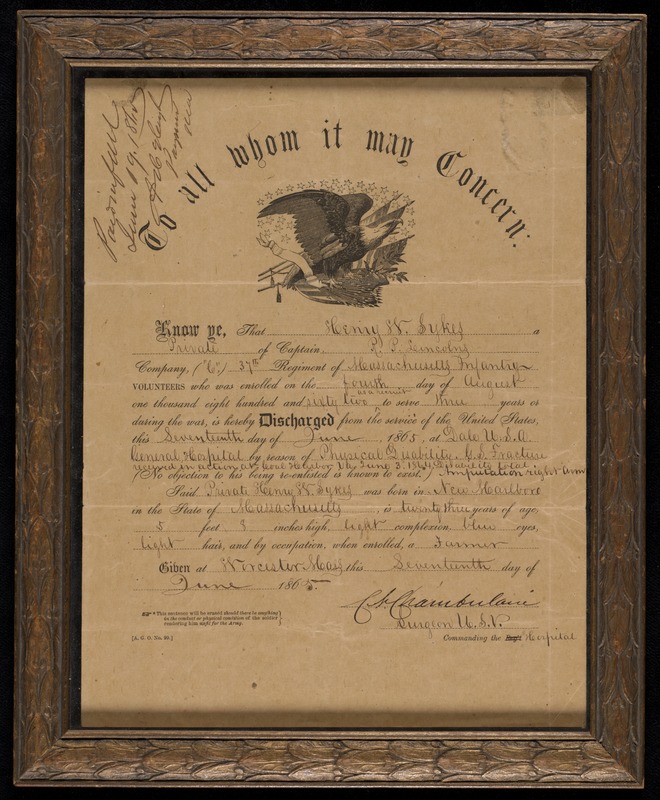 Paid in full
June 19, 1865
Paymaster
To all whom it may Concern:
Know ye, That Henry W. Sykes a
Private of Captain, R. P. Lincolns
Company, (C,) 37th Regiment of Massachusetts Infantry
VOLUNTEERS who was enrolled on the fourth day of August
as a recruit
one thousand eight hundred and sixty two to serve three years or
during the war, is hereby Discharged from the service of the United States,
this Seventeenth day of June, 1865, at Dale U.S.A.
General Hospital by reason of Physical Disability. G.S. Fracture
received in action at Coal Harbor Va June 3. 1864 Disability total
(No objection to his being re-enlisted is known to exist.) Amputation right arm
Said Private Henry W. Sykes was born in New Marlboro
in the State of Massachusetts, is twenty three years of age,
5 feet, 8 inches high, light complexion, blue eyes,
light hair, and by occupation, when enrolled, a Farmer
Given at Worcester Mass, this Seventeenth day of
June 1865.
C N Chamberlain
Surgeon U.S.V.
Commanding the Reg't Hospital
*This sentence will be erased should there be anything
in the conduct or physical condition of the soldier
rendering him unfit for the Army.
[A. G. O. No. 99.]